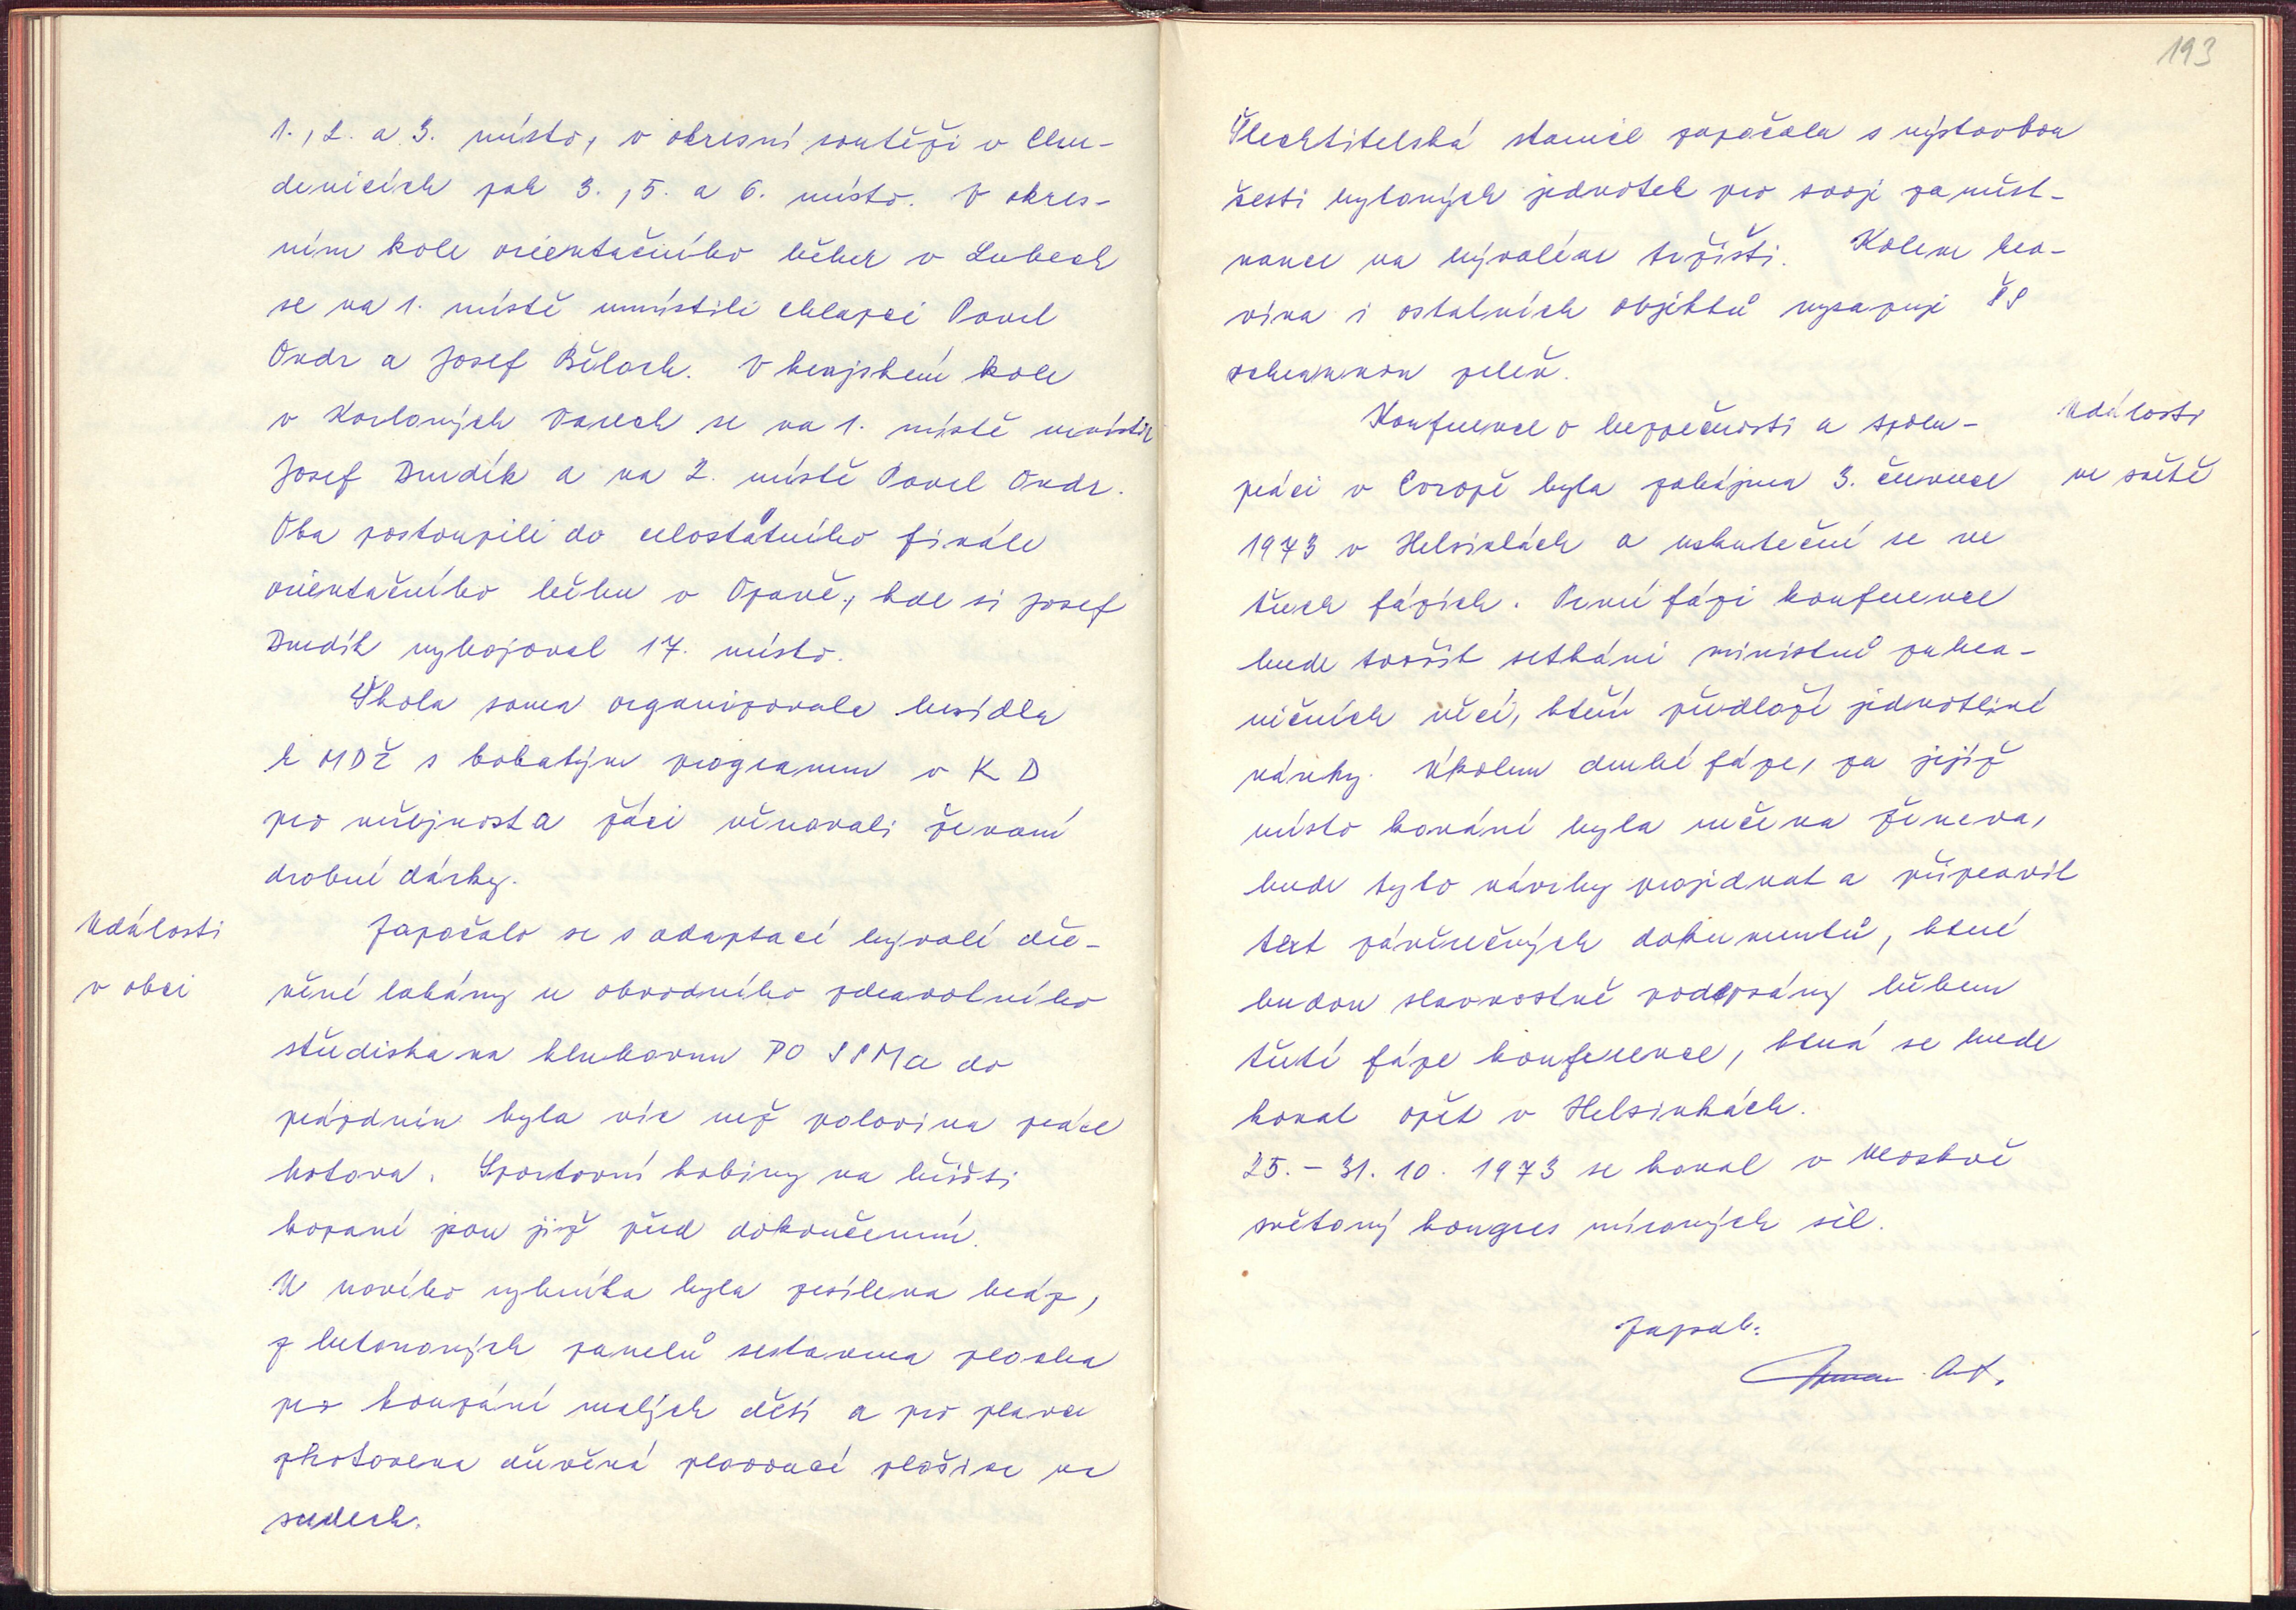 193
1., 2. a 3. místo, v okresní soutěži v Chu-
denicích pak 3., 5. a 6. místo. V okres-
ním kole orientačního běhu v Lubech
se na 1. místě umístili chlapci Pavel
Ondr a Josef Běloch. V krajském kole
v Karlových Varech se na 1. místě umístil
Josef Smudík a na 2. místě Pavel Ondr.
Oba postoupili do celostátního finále
orientačního běhu v Opavě, kde si Josef
vybojoval 17. místo.
Škola sama organizovala besídku
k MDŽ s bohatým programem v KD
pro veřejnost a žáci věnovali ženám
drobné dárky.
Události
v obci
Započalo se s adaptací bývalé dře-
věné lakárny u obvodního zdravotního
střediska na klubovnu PO SSM a do
prázdnin byla víc než polovina práce
hotova. Sportovní kabiny na hřišti
kopané jsou již před dokončením.
U nového rybníka byla zesílena hráz,
z betonových panelů sestavena plocha
pro koupání malých dětí a pro plavce
zhotovena dřevěná plovoucí plošina na
sudech.
Šlechtitelská stanice započala s výstavbou
šesti bytových jednotek pro svoje zaměst-
nance na bývalém tržišti. Kolem kra-
vína i ostatních objektů vysazuje ŠS
ochrannou zeleň.
Události
ve světě
Konference o bezpečnosti a spolu-
práci v Evropě byla zahájena 3. července
1973 v Helsinkách a uskuteční se ve
třech fázích. První fázi konference
bude tvořit setkání ministrů zahra-
ničních věcí, kteří předloží jednotlivé
návrhy. Úkolem druhé fáze, za jejíž
místo konání byla určena Ženeva,
bude tyto návrhy projednat a připravit
text závěrečných dokumentů, které
budou slavnostně podepsány během
třetí fáze konference, která se bude
konat opět v Helsinkách.
25. – 31. 10. 1973 se konal v Moskvě
světový kongres mírových sil.
Zapsal:
Ant.